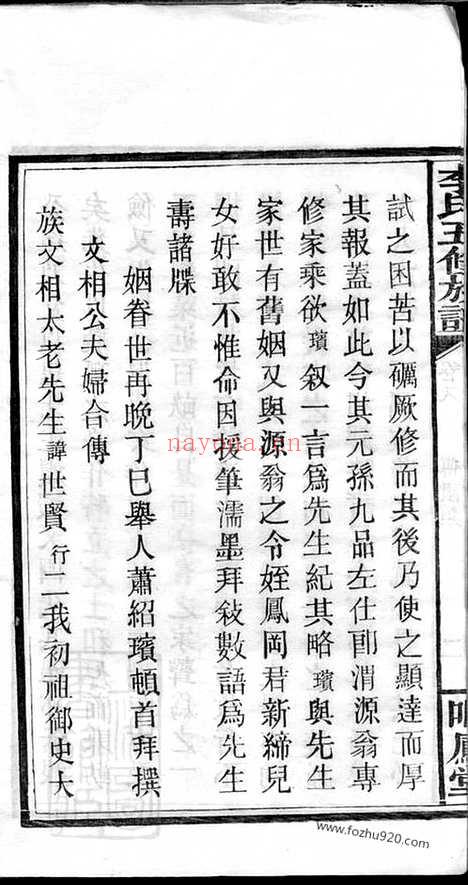 李氏五修族譜
卷八
鳴鳳堂
試之困苦以礪厥修而其後乃使之顯達而厚
其報蓋如此今其元孫九品左仕卽渭源翁專
修家乘欲璸叙一言爲先生紀其略璸與先生
家世有舊姻又與源翁之令姪鳳岡君新締兒
女好敢不惟命因援筆濡墨拜敍數語爲先生
壽諸牒
姻眷世再晩丁巳舉人蕭紹璸頓首拜撰
文相公夫婦合傳
族文相太老先生諱世賢行二我初祖御史大
nayona.cn
www.fozhu920.com